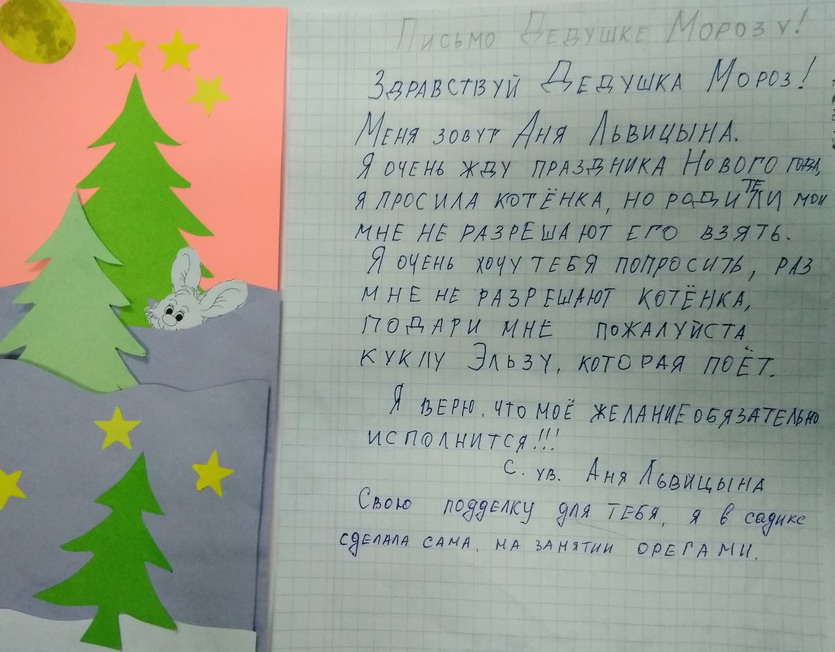 Письмо Дедушке Морозу!
Здравствуй Дедушка Мороз!
Меня зовут Аня Львицына.
Я очень жду праздника Нового года,
я просила котёнка, но родители мои
мне не разрешают его взять.
Я очень хочу тебя попросить, раз
мне не разрешают котёнка,
подари мне пожалуйста
куклу Эльзу, которая поёт.
Я верю, что моё желание обязательно
исполнится!!!
С. ув. Аня Львицына
Свою подделку для тебя, я в садике
сделала сама, на занятии орегами.